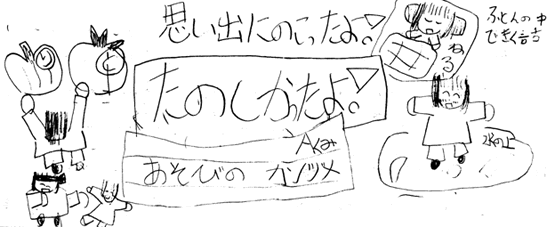 思い出にのこったよ!
ねる
ふとんの中
できく話
たのしかったよ!
Aくみ
あそびの カンヅメ
氷の上